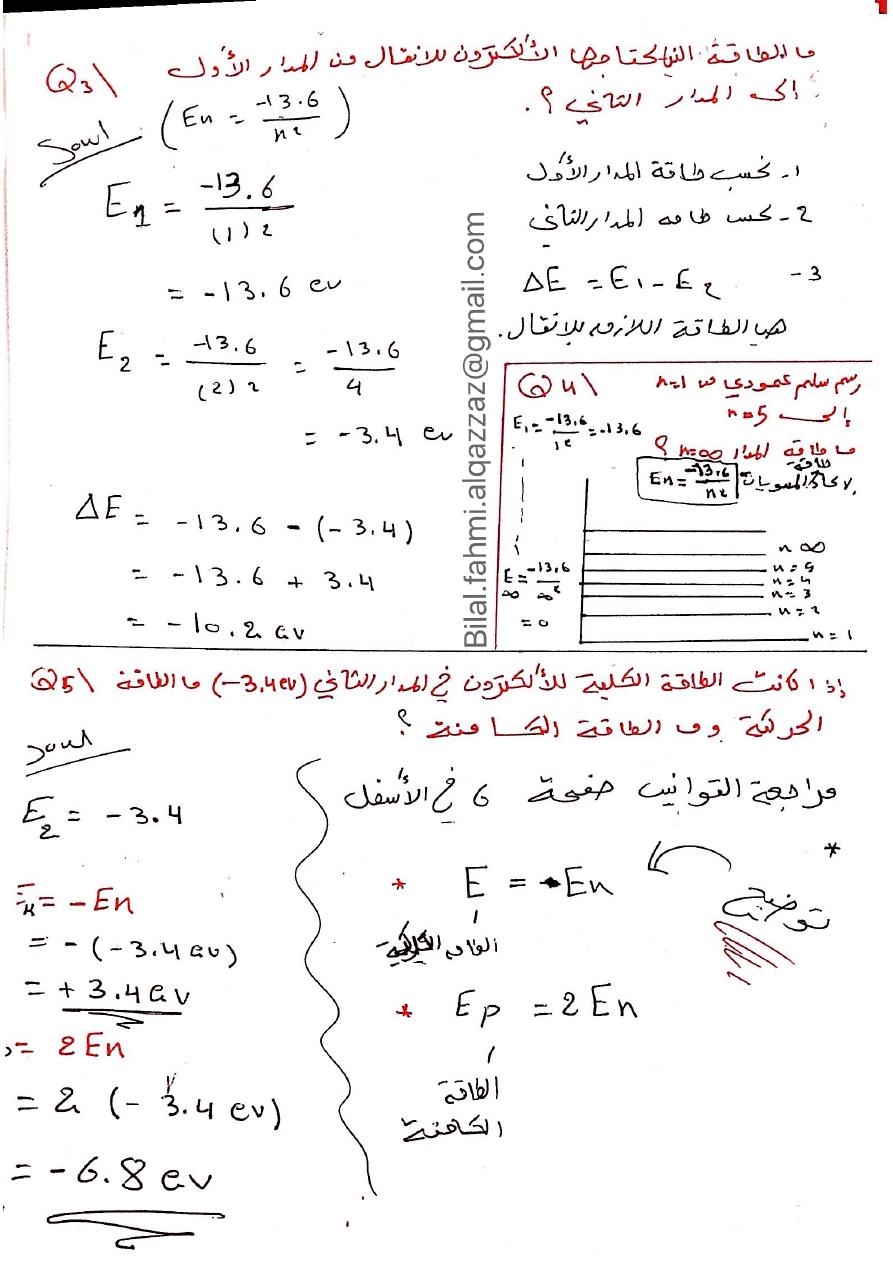 Q3\ ما الطاقة التي يحتاجها الألكترون للانتقال من المدار الأول
إلى المدار الثاني ؟.
(En = -13.6/n²)
E1 = -13.6/(1)2
= -13.6 ev
E2 = -13.6/(2)2 = -13.6/4
= -3.4 ev
ΔE = -13.6 - (-3.4)
= -13.6 + 3.4
= -10.2 ev
1- نحسب طاقة المدار الأول
2- نحسب طاقة المدار الثاني
3- ΔE = E1 - E2
هي الطاقة اللازمة للإنتقال.
Bilal.fahmi.alqazzaz@gmail.com
Q4\ رسم سلم عمودي من n=1
إلى n=5
ما طاقة المدار n=∞ ؟
En = -13.6/n2
E1 = -13.6/1² = -13.6
E∞ = -13.6/∞²
= 0
n ∞
n = 5
n = 4
n = 3
n = 2
n = 1
Q5\ إذا كانت الطاقة الكلية للألكترون في المدار الثاني (-3.4ev) ما الطاقة
الحركية وما الطاقة الكامنة ؟
E2 = -3.4
= -En
= -(-3.4 ev)
= +3.4 ev
= 2En
= 2 (-3.4 ev)
= -6.8 ev
مراجعة القوانين صفحة 6 في الأسفل
* توضيح
* E = -En
* Ep = 2En
الطاقة
الكامنة